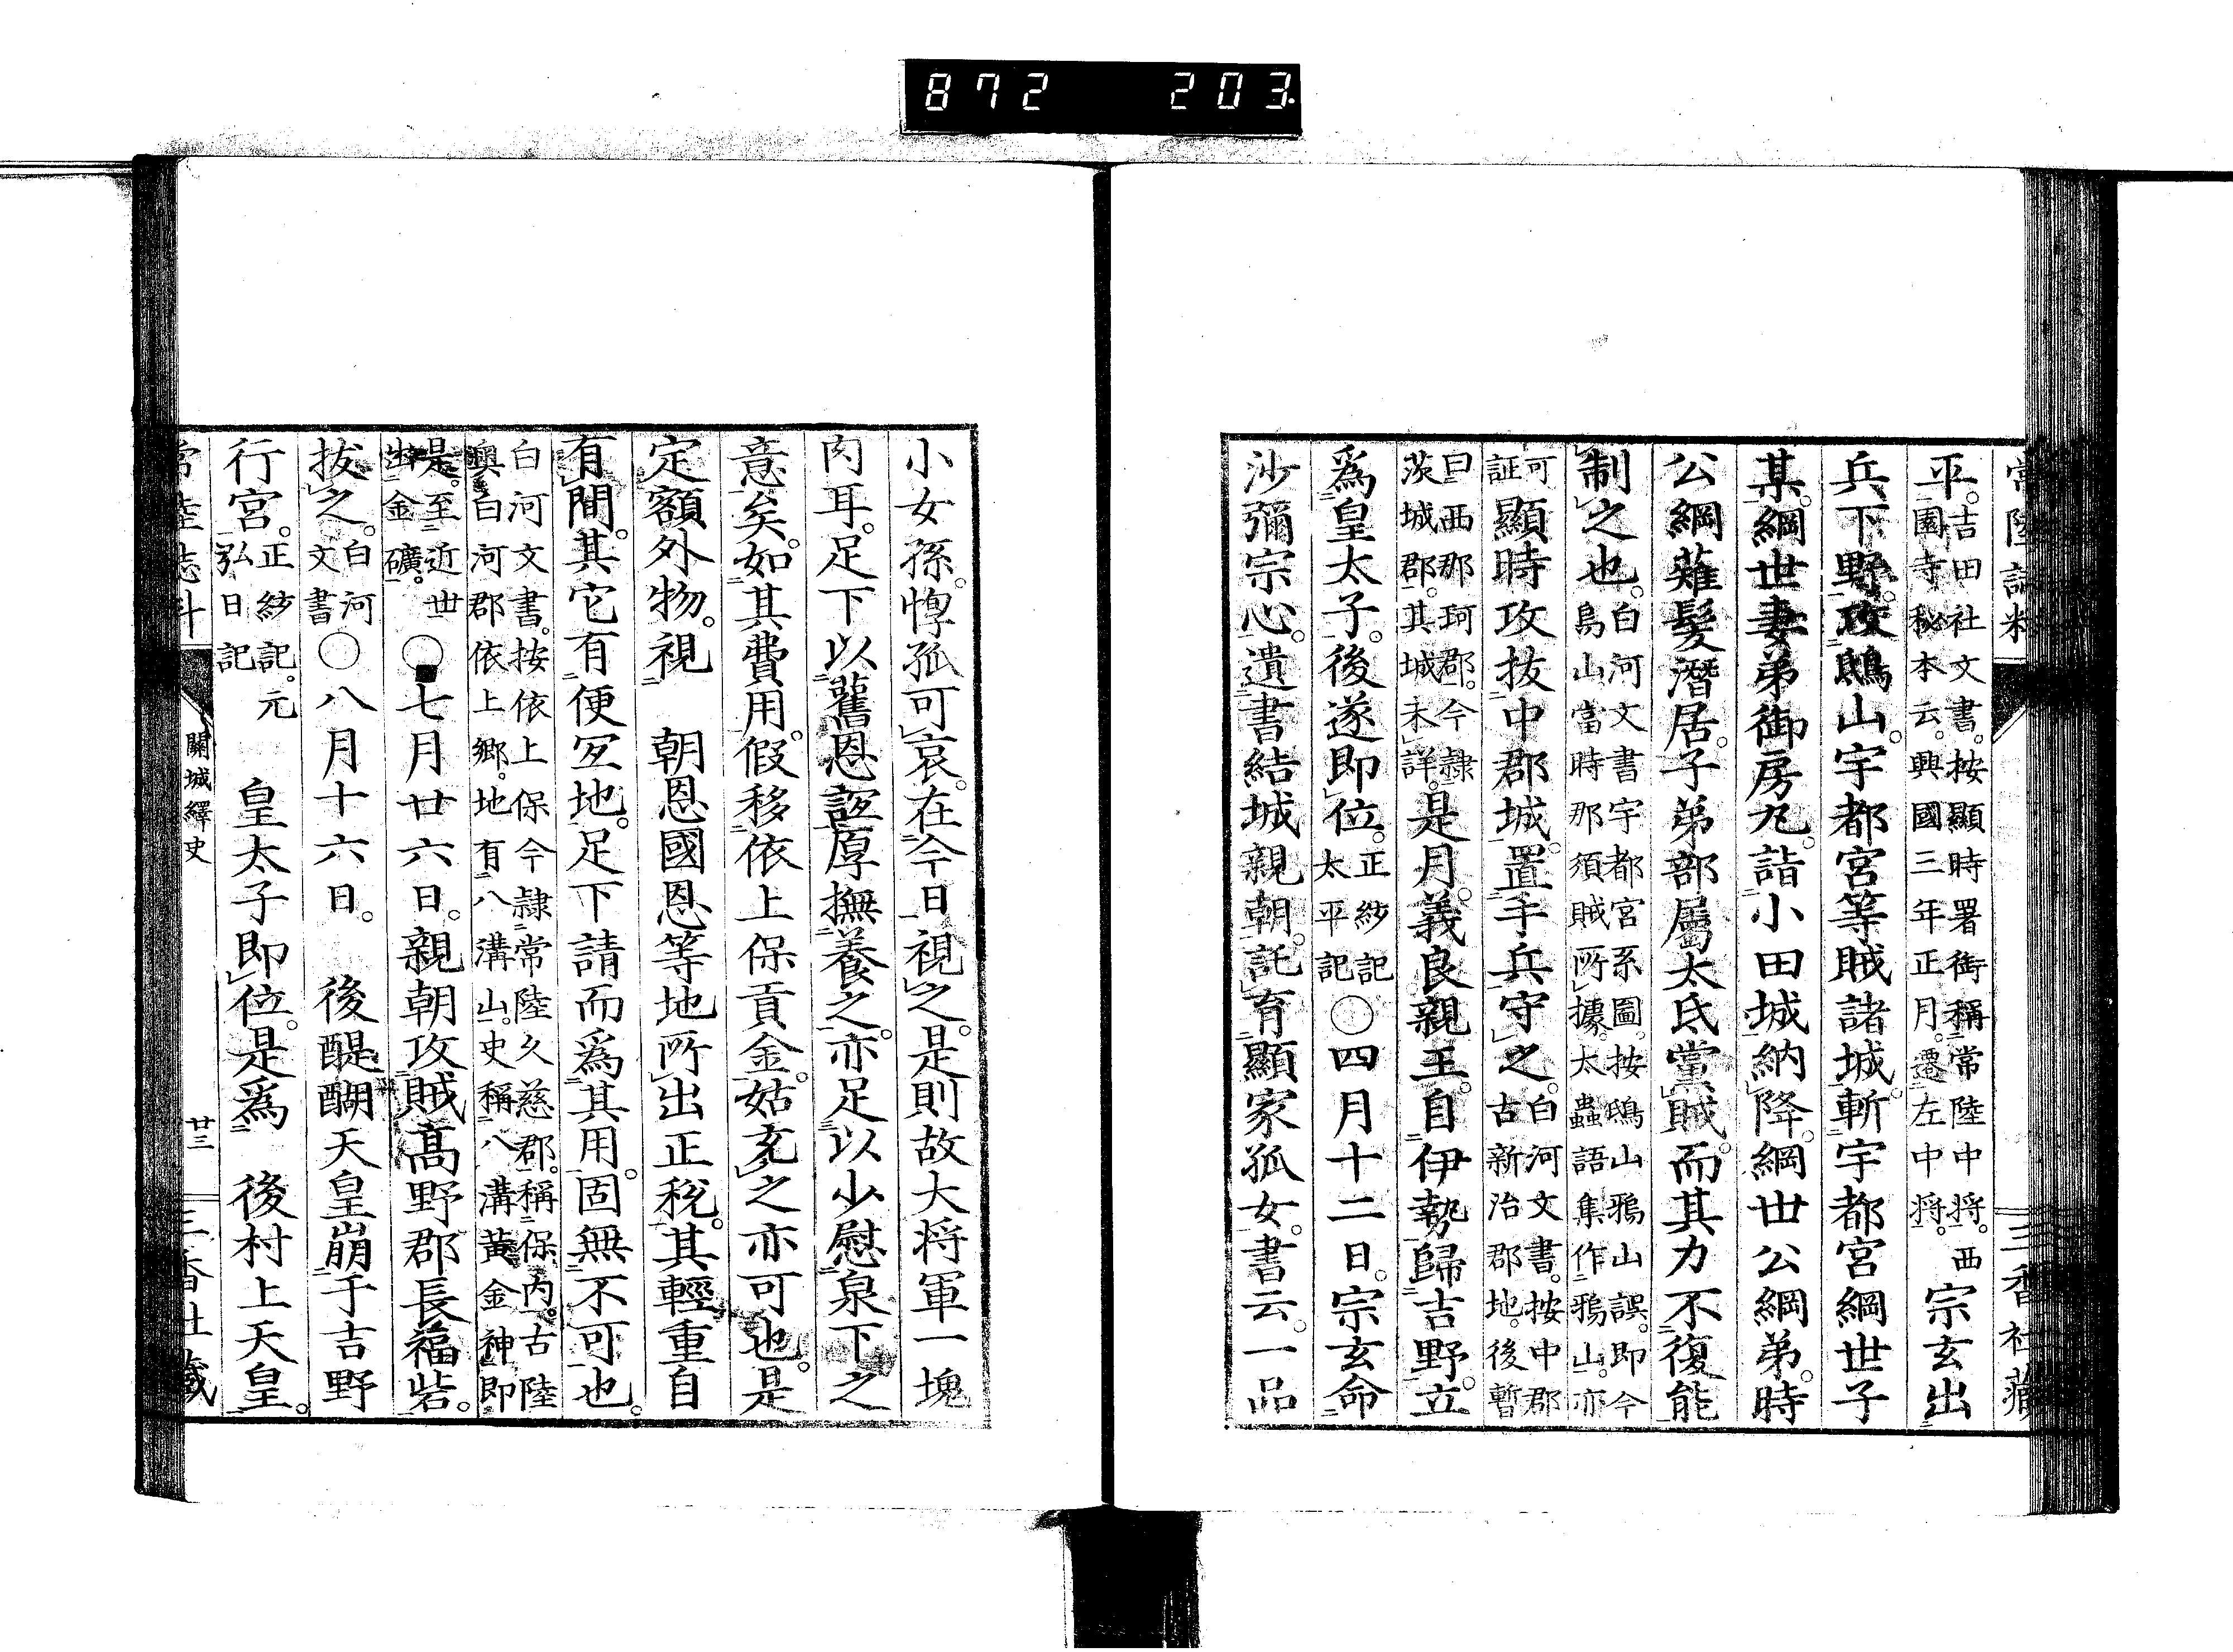 872 203.
平。吉田社文書。按顯時署銜稱常陸中將。西園寺秘本云。興國三年正月。遷左中將。宗玄出
兵下野。攻鴟山。宇都宮等賊諸城。斬宇都宮綱世子
某。綱世妻弟御房丸。詣小田城納降。綱世公綱弟。時
公綱薙髮潛居。子弟部屬太氐黨賊。而其力不復能
制之也。白河文書宇都宮系圖。按鴟山鴉山誤。即今烏山當時那須賊所據。太蟲語集作鴉山。亦
可証顯時攻拔中郡城。置手兵守之。白河文書。按中郡古新治郡地。後暫
曰西那珂郡。今隸茨城郡。其城未詳。是月。義良親王。自伊勢歸吉野。立
爲皇太子。後遂即位。正紗記太平記〇四月十二日。宗玄命
沙彌宗心。遺書結城親朝。託育顯家孤女。書云。一品
小女孫。惸孤可哀。在今日視之。是則故大将軍一塊
肉耳。足下以舊恩誼厚撫養之。亦足以少慰泉下之
意矣。如其費用。假移依上保貢金。姑充之亦可也。是
定額外物。視 朝恩國恩等地所出正稅。其輕重自
有間。其它有便宜地。足下請而爲其用。固無不可也。
白河文書。按依上保今隸常陸久慈郡。稱保内。古陸奧白河郡依上鄉。地有八溝山。史稱八溝黃金神即
是。至近世出金礦。〇七月廿六日。親朝攻賊高野郡長福砦。
拔之。白河文書〇八月十六日。 後醍醐天皇崩于吉野
行宮。正紗記。元弘日記 皇太子即位。是爲 後村上天皇。
關城繹史 廿三